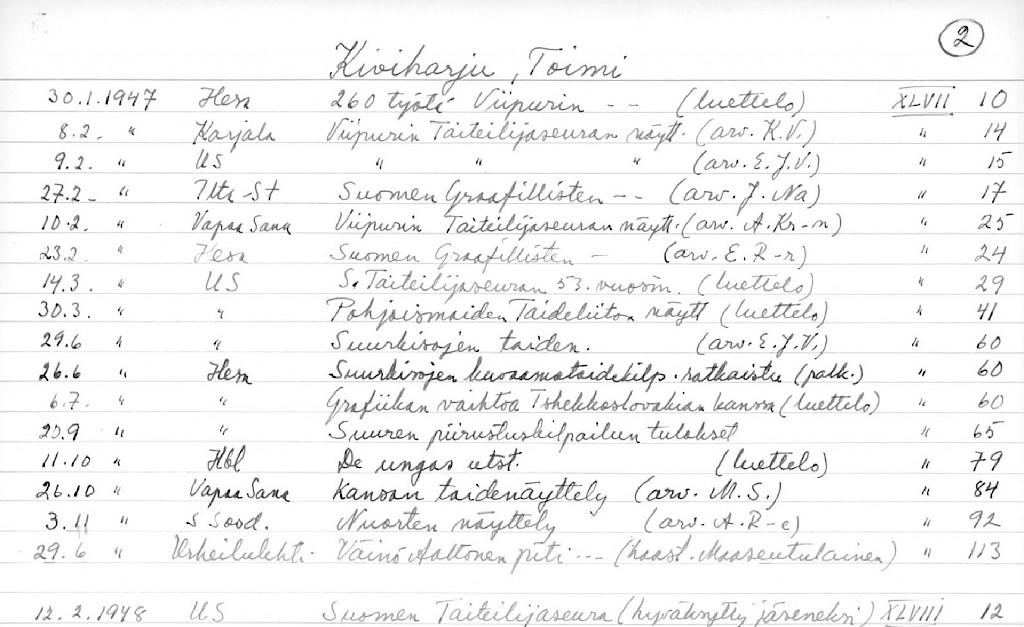 2
Kiviharju, Toimi
30.1.1947 Hesa 260 työtä Viipurin -- (luettelo) XLVII 10
8.2. " Karjala Viipurin Taiteilijaseuran näytt. (arv. K.V.) " 14
9.2. " US " " " (arv. E.J.V.) " 15
27.2. " Ilta-St Suomen Graafillisten -- (arv. J. Na) " 17
10.2. " Vapaa Sana Viipurin Taiteilijaseuran näytt. (arv. A. Kr-n) " 25
23.2. " Hesa Suomen Graafillisten - (arv. E. R-r) " 24
14.3. " US S. Taiteilijaseuran 53. vuosin. (luettelo) " 29
30.3. " " Pohjoismaiden Taideliiton näytt (luettelo) " 41
29.6 " " Suurkisojen taiden. (arv. E.J.V.) " 60
26.6 " Hesa Suurkisojen kuvaamataidekilp. ratkaistu (palk.) " 60
6.7. " " Grafiikan vaihtoa Tshekkoslovakian kanssa (luettelo) " 60
20.9 " " Suuren piirustuskilpailun tulokset " 65
11.10 " Hbl De ungas utst. (luettelo) " 79
26.10 " Vapaa Sana Kansan taidenäyttely (arv. M.S.) " 84
3.11 " S Sosd. Nuorten näyttely (arv. A. R-e) " 92
29.6 " Urheilulehti. Väinö Aaltonen piti --- (haast. Maaseutulainen) " 113
12.2.1948 US Suomen Taiteilijaseura (hyväksytty jäseneksi) XLVIII 12